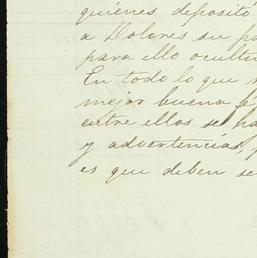 quienes depositó
a Dolores su
para ello
En todo lo que
mejor buena fé
entre ellos se ha
y advertencias,
es que deben se